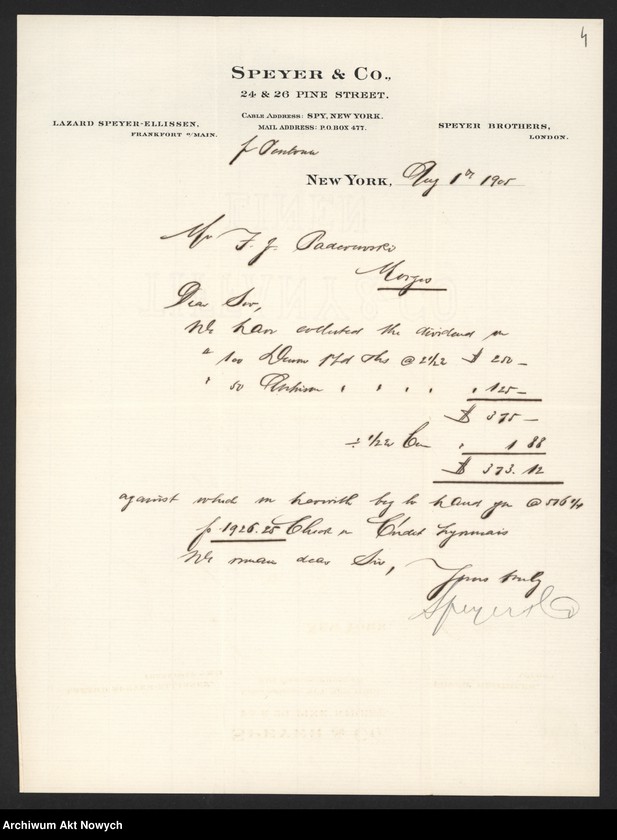 4
SPEYER & CO.,
24 & 26 PINE STREET.
CABLE ADDRESS: SPY, NEW YORK.
MAIL ADDRESS: P.O. BOX 477.
LAZARD SPEYER-ELLISSEN,
FRANKFORT o/MAIN.
SPEYER BROTHERS,
LONDON.
NEW YORK, Aug 1st 1905
Mr I. J. Paderewski
Morges
Dear Sir,
We have collected the dividend on
100 Denver Pfd Shs @ 2 1/2 $ 250 –
" 50 Atchison " " " " " 125 –
$ 375 –
÷ 1/2% Com " 1 88
$ 373.12
against which we herewith beg to hand you @ 516 1/4
f 1926.25 Check on Crédit Lyonnais
We remain dear Sir,
Yours truly
Speyer & Co
Archiwum Akt Nowych